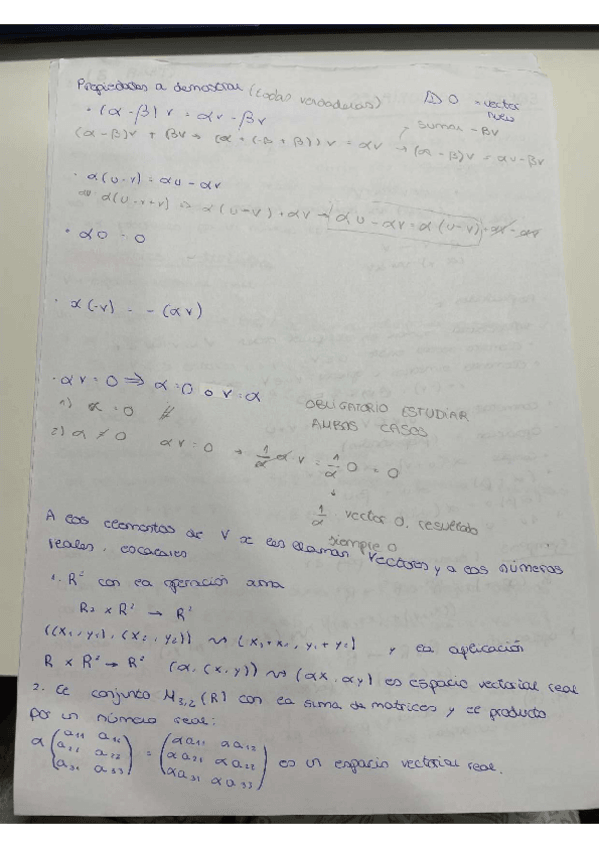 Propiedades a demostrar (todas verdaderas) ⚠ 0 = vector nulo
· (α - β) v = αv - βv
(α - β)v + βv = (α + (-β + β)) v = αv → (α - β)v = αv - βv
sumar -βv
· α(u - v) = αu - αv
α(u - v + v) = α(u - v) + αv → αu - αv = α(u - v)
· α0 = 0
· α(-v) = -(αv)
· αv = 0 ⟹ α = 0 o v = α
1) α = 0 //
OBLIGATORIO ESTUDIAR AMBOS CASOS
2) α ≠ 0 αv = 0 → 1/α αv = 1/α 0 = 0
↓
1/α vector 0, resultado siempre 0
A los elementos de V se les llaman vectores y a los números
reales, escalares
1. R² con la operación suma
R² x R² → R²
((x₁, y₁), (x₂, y₂)) ⇝ (x₁+x₂, y₁+y₂) y la aplicación
R x R² → R² (α, (x, y)) ⇝ (αx, αy) es espacio vectorial real
2. El conjunto M₃,₂ (R) con la suma de matrices y el producto
por un número real:
α (a₁₁ a₁₂ = (αa₁₁ αa₁₂
a₂₁ a₂₂ αa₂₁ αa₂₂ es un espacio vectorial real.
a₃₁ a₃₃) αa₃₁ αa₃₃)